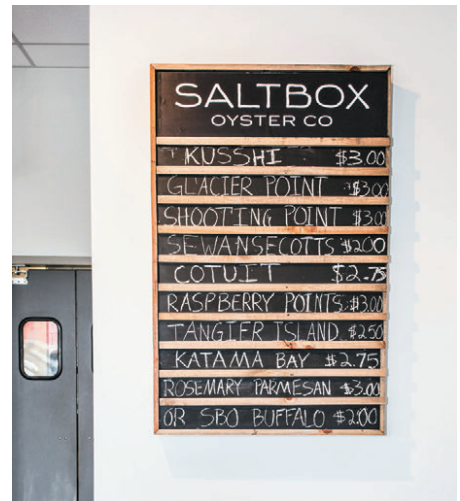 SALTBOX
OYSTER CO
KUSSHI $3.00
GLACIER POINT $3.00
SHOOTING POINT $3.00
SEWANSECOTTS $2.00
COTUIT $2.75
RASPBERRY POINTS $3.00
TANGIER ISLAND $2.50
KATAMA BAY $2.75
ROSEMARY PARMESAN $3.00
OR SBO BUFFALO $2.00